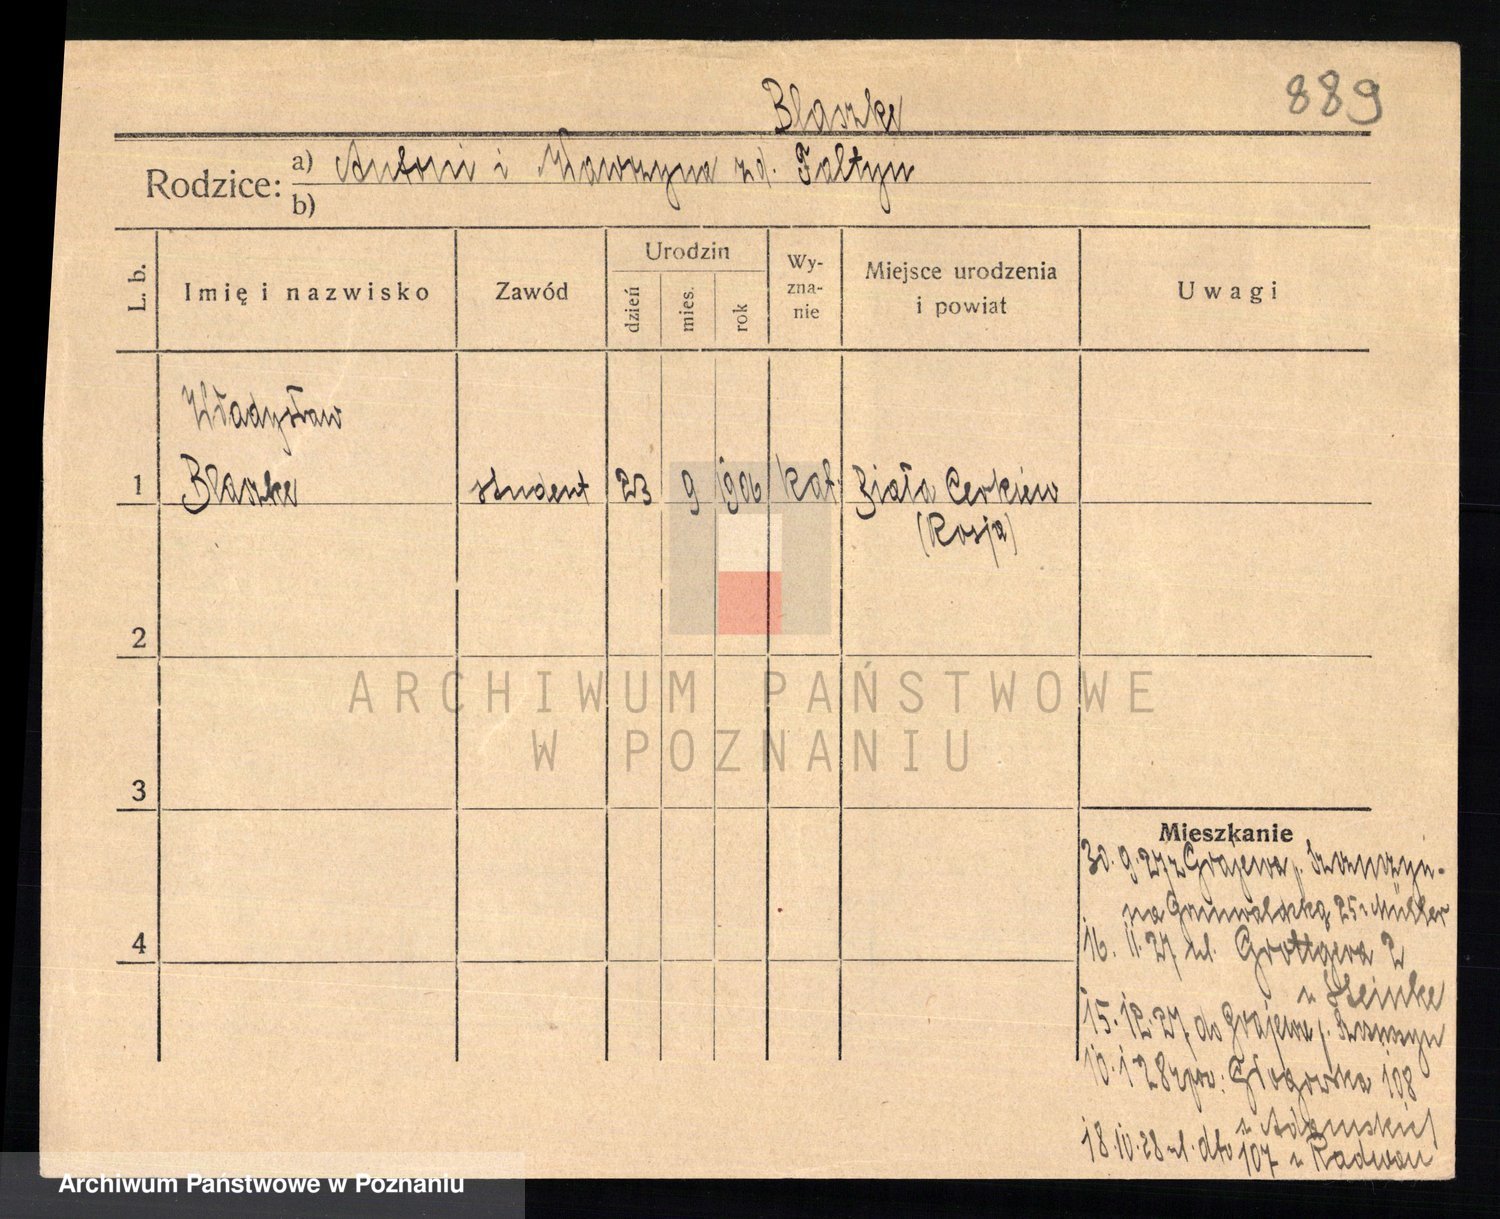 889
Blaszke
Rodzice: a) Antoni i Wawrzyna zd. Faltyn
b)
L. b.
Imię i nazwisko
Zawód
Urodzin
dzień
mies.
rok
Wy-
zna-
nie
Miejsce urodzenia
i powiat
Uwagi
Władysław
1 Blaszke student 23 9 1906 kat. Biała Cerkiew
(Rosja)
2
3
4
Mieszkanie
30. 9. 27 z Grajewa p. Szczuczyn.
na Grunwaldzką 25 u Müller
16. 11. 27 ul. Grottgera 2
u Steinke
15. 12. 27. do Grajewa p. Szczuczyn
10. 1 28 spr. Głogowska 108
u Adamskiej
18. 10. 28 ul. dto 107 u Radwan
ARCHIWUM PAŃSTWOWE
W POZNANIU
Archiwum Państwowe w Poznaniu